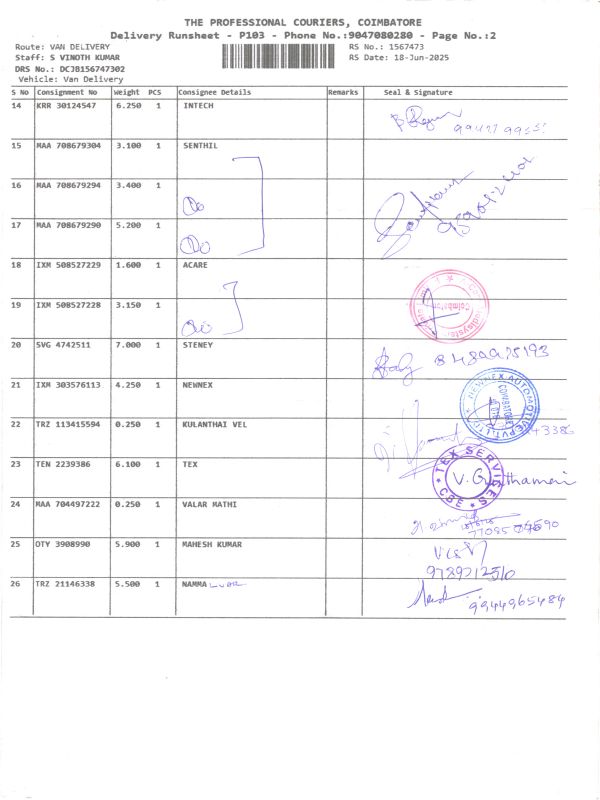 THE PROFESSIONAL COURIERS, COIMBATORE
Delivery Runsheet - P103 - Phone No.:9047080280 - Page No.:2
Route: VAN DELIVERY RS No.: 1567473
Staff: S VINOTH KUMAR RS Date: 18-Jun-2025
DRS No.: DCJB156747302
Vehicle: Van Delivery
S No Consignment No Weight PCS Consignee Details Remarks Seal & Signature
14 KRR 30124547 6.250 1 INTECH
15 MAA 708679304 3.100 1 SENTHIL
16 MAA 708679294 3.400 1
17 MAA 708679290 5.200 1
18 IXM 508527229 1.600 1 ACARE
19 IXM 508527228 3.150 1
20 SVG 4742511 7.000 1 STENEY
21 IXM 303576113 4.250 1 NEWNEX
NEWNEX AUTOMOTIVE PVT. LTD
COIMBATORE
22 TRZ 113415594 0.250 1 KULANTHAI VEL
23 TEN 2239386 6.100 1 TEX
TEX SERVICES
CBE
24 MAA 704497222 0.250 1 VALAR MATHI
25 OTY 3908990 5.900 1 MAHESH KUMAR
26 TRZ 21146338 5.500 1 NAMMA
9944965484